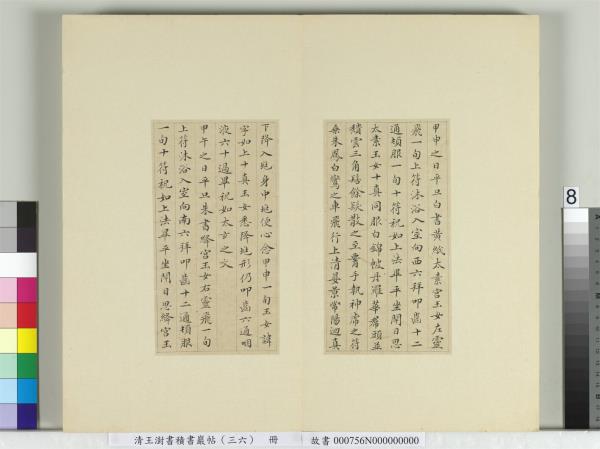 甲申之日平旦白書黃紙太素宮玉女左靈
飛一旬上符沐浴入室向西六拜叩齒十二
通頓服一旬十符祝如上法畢平坐閉目思
太素玉女十真同服白錦帔丹羅華帬頭並
穨雲三角髻餘髮散之至膂手執神虎之符
乘朱鳳白鸞之車飛行上清晏景常陽迴真
下降入兆身中兆便心念甲申一旬玉女諱
字如上十真玉女悉降兆形仍叩齒六通咽
液六十過畢祝如太玄之文
甲午之日平旦朱書絳宮玉女右靈飛一旬
上符沐浴入室向南六拜叩齒十二通頓服
一旬十符祝如上法畢平坐閉目思絳宮玉
8
清王澍書積書巖帖（三六）　冊
故書 000756N000000000